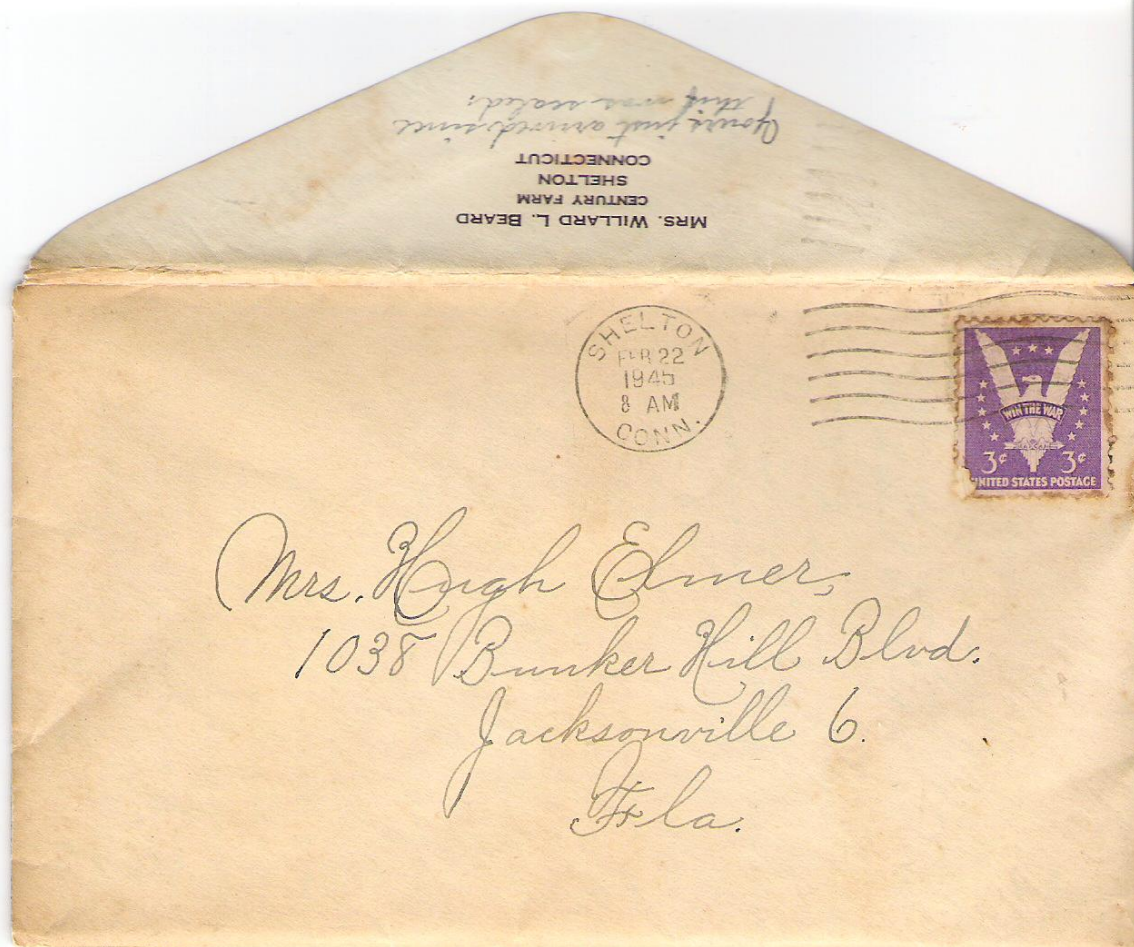 Yours just arrived since
I this was sealed.
CONNECTICUT
SHELTON
CENTURY FARM
MRS. WILLARD L. BEARD
SHELTON
FEB 22
1945
8 AM
CONN.
WIN THE WAR
3¢ 3¢
UNITED STATES POSTAGE
Mrs. Hugh Elmer,
1038 Bunker Hill Blvd.
Jacksonville 6.
Fla.